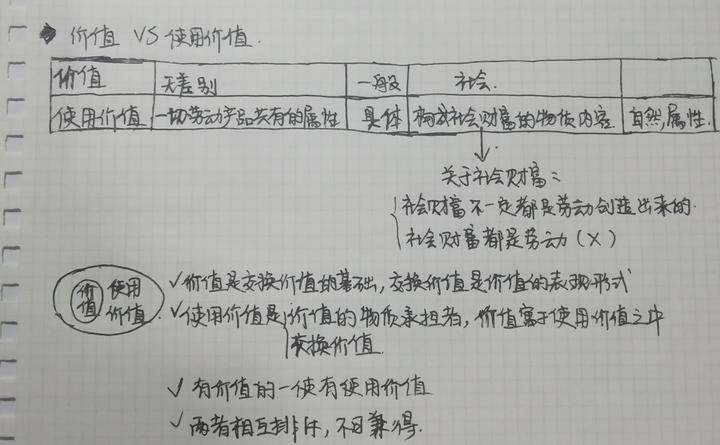 价值 VS 使用价值.
价值 无差别 一般 社会.
使用价值 一切劳动产品共有的属性 具体 构成社会财富的物质内容 自然属性.
关于社会财富:
社会财富不一定都是劳动创造出来的.
社会财富都是劳动(X)
价值 使用价值
√价值是交换价值的基础,交换价值是价值的表现形式
√使用价值是价值的物质承担者,价值寓于使用价值之中
交换价值
√有价值的一使有使用价值
√两者相互排斥,不可兼得.